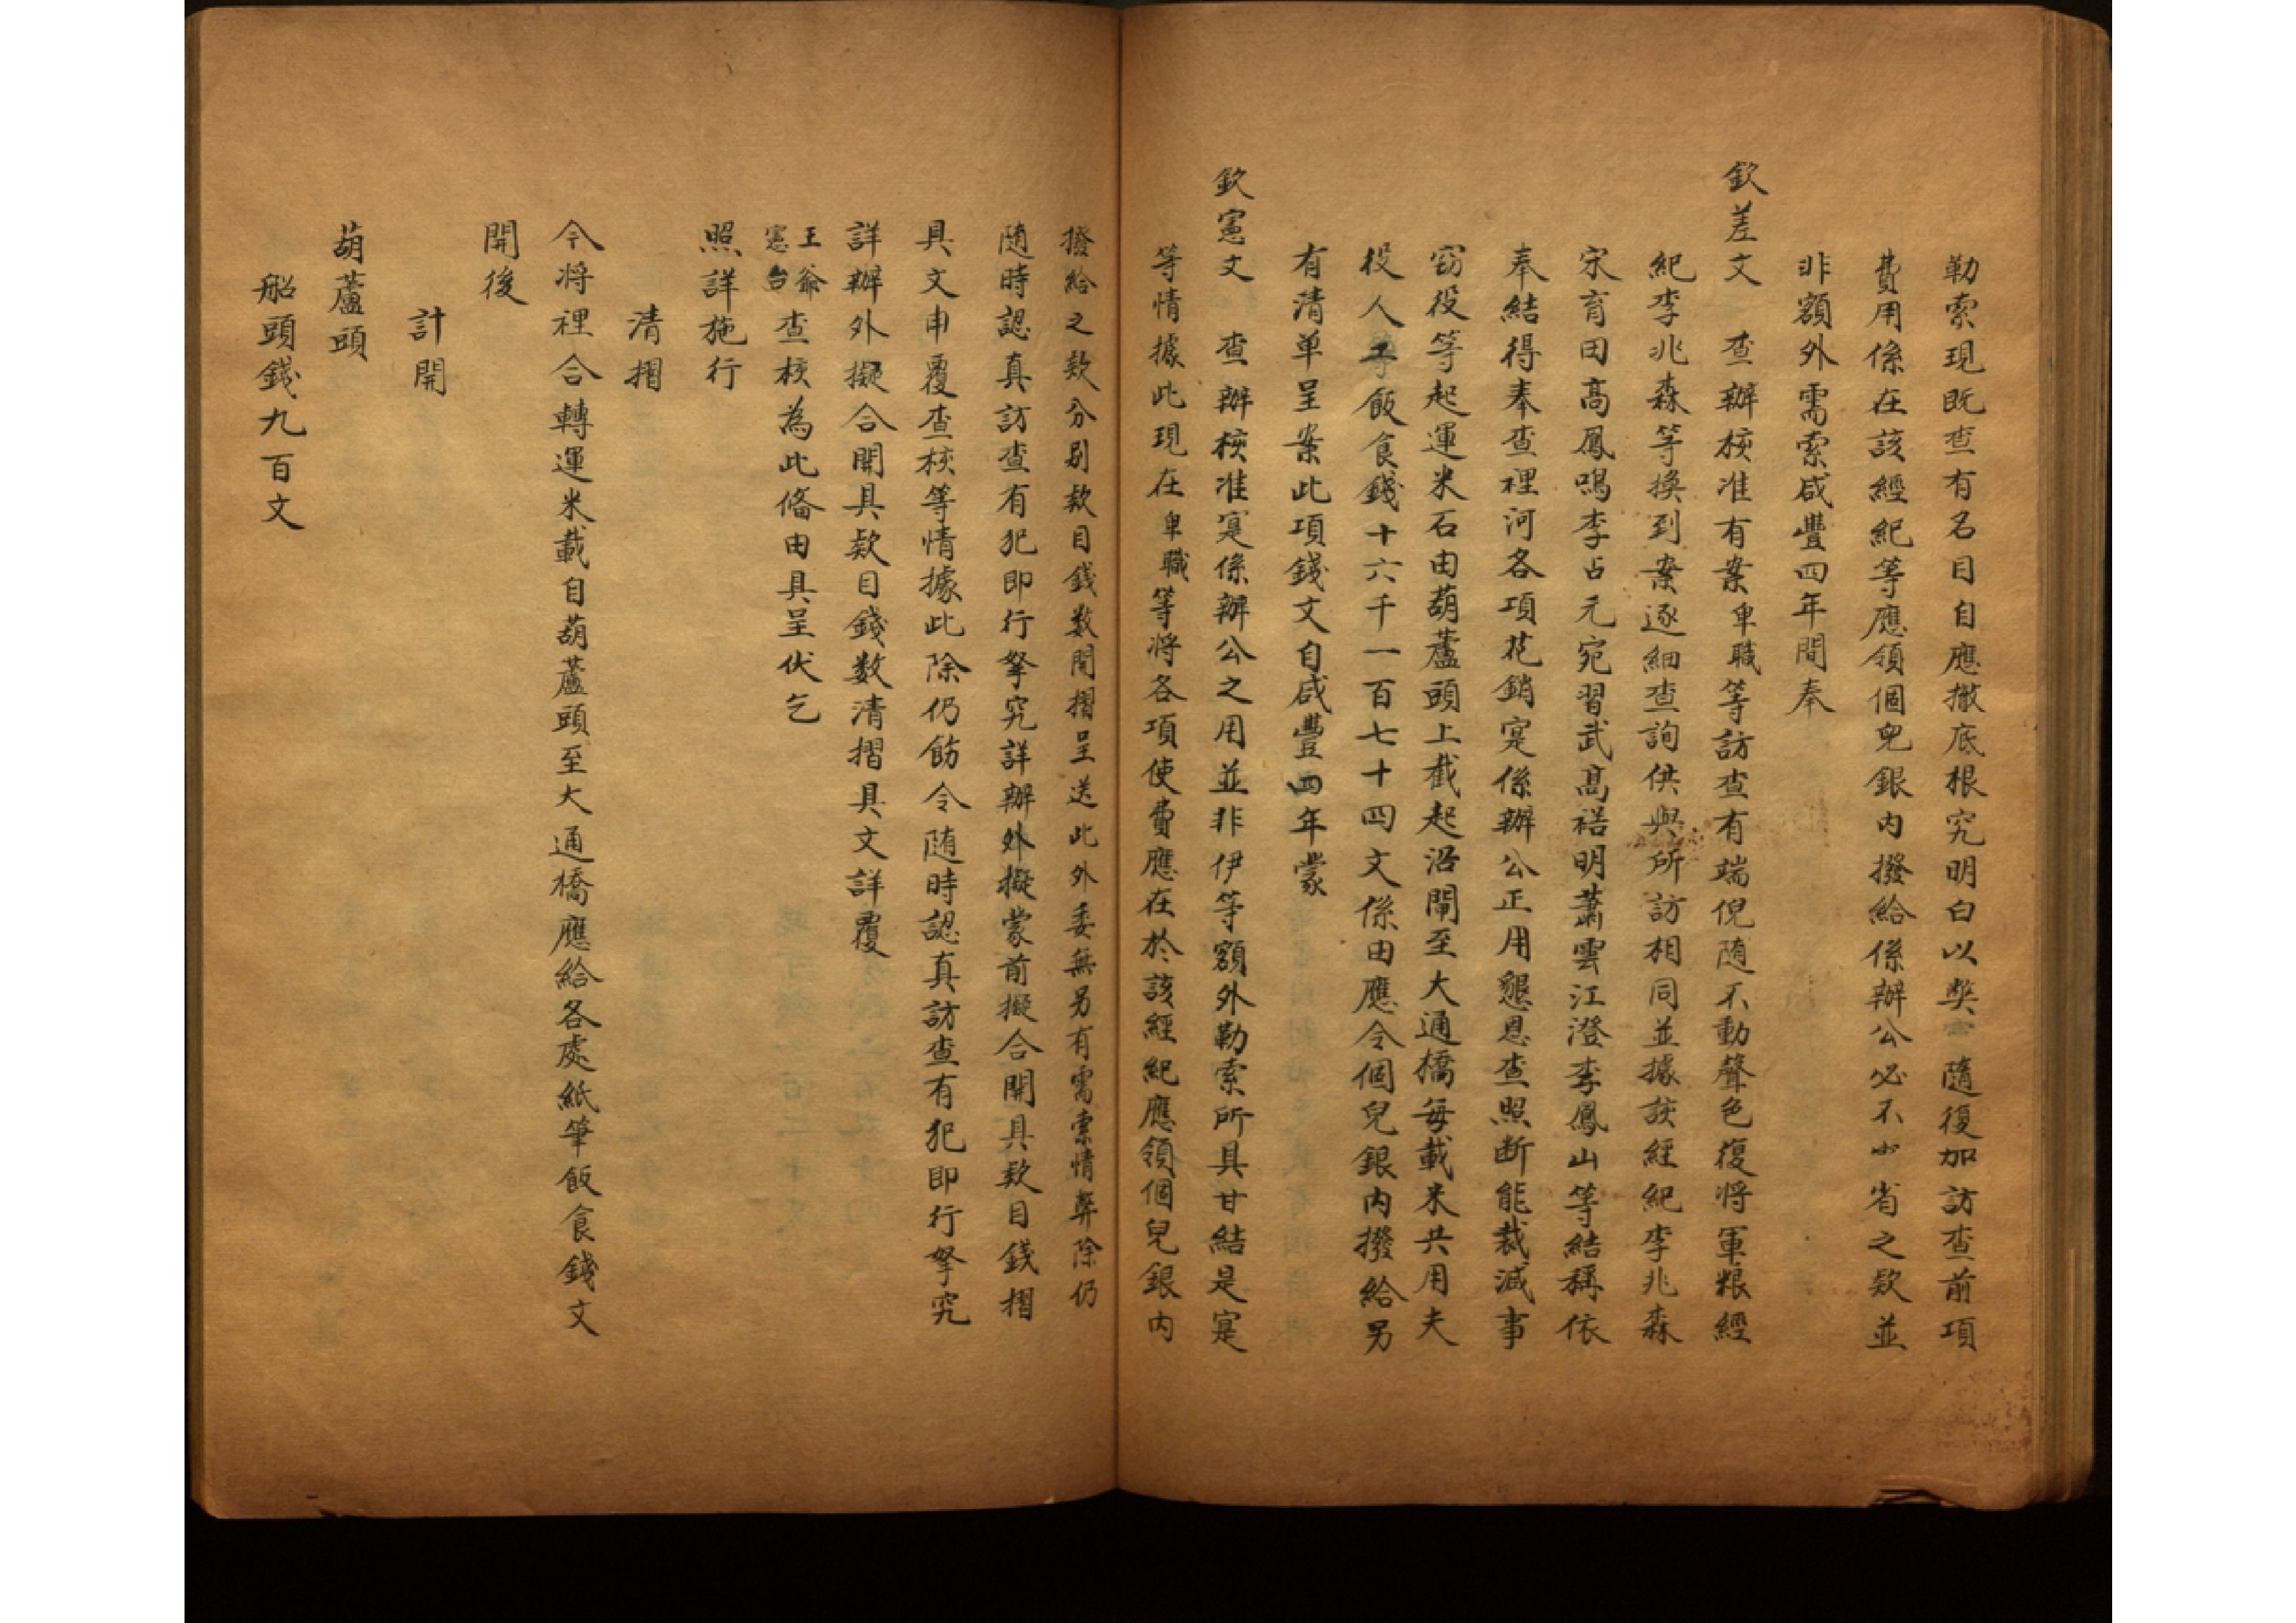 勒索現既查有名目自應撤底根究明白以奘 隨復加訪查前項
費用係在該經紀等應領個兒銀内撥給係辦公必不少省之欵並
非額外需索咸豐四年間奉
欽差文 查辦核准有案卑職等訪查有端倪随不動聲色復将軍粮經
紀李兆森等換到案逐細查詢供與所訪相同並據該經紀李兆森
宋育田高鳳鳴李占元宛習武髙禧明蕭雲江澄李鳳山等結稱依
奉結得奉查裡河各項花銷寔係辦公正用懇恩查照断能裁減事
窃役等起運米石由葫蘆頭上截起沿閘至大通橋每載米共用夫
役人等飯食錢十六千一百七十四文係由應令個兒銀内撥給另
有清单呈案此項錢文自咸豐四年蒙
欽憲文 查辦核准寔係辦公之用並非伊等額外勒索所具甘結是寔
等情據此現在卑職等将各項使費應在於該經紀應領個兒銀内
撥給之欵分别欵目錢数開摺呈送此外委無另有需索情弊除仍
随時認真訪查有犯即行拏究詳辦外擬蒙前擬合開具欵目錢摺
具文申覆查核等情據此除仍飭令随時認真訪查有犯即行拏究
詳辦外擬合開具欵目錢数清摺具文詳覆
王爺憲台查核為此俻由具呈伏乞
照詳施行
清摺
今将裡合轉運米載自葫蘆頭至大通橋應給各處紙筆飯食錢文
開後
計開
葫蘆頭
船頭錢九百文